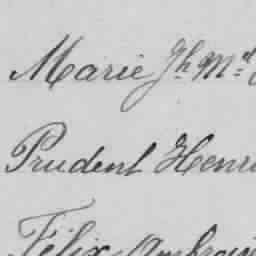 Marie Jh Md
Prudent Henri
Félix Ambroi